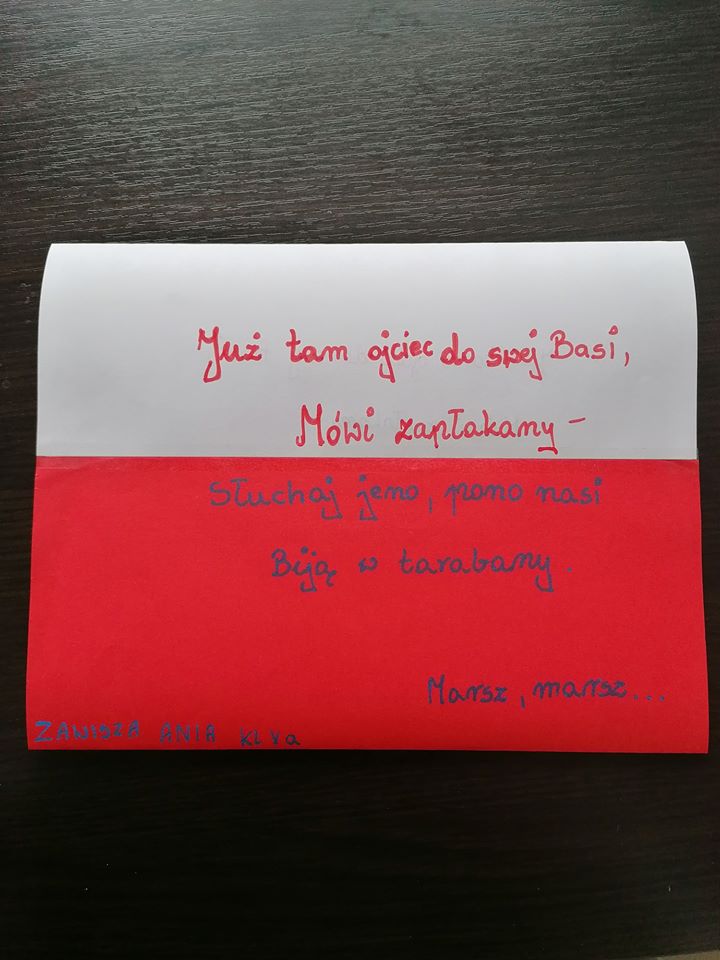 Już tam ojciec do swej Basi,
Mówi zapłakany –
Słuchaj jeno, pono nasi
Biją w tarabany.
Marsz, marsz...
ZANISZA ANIA kl V a